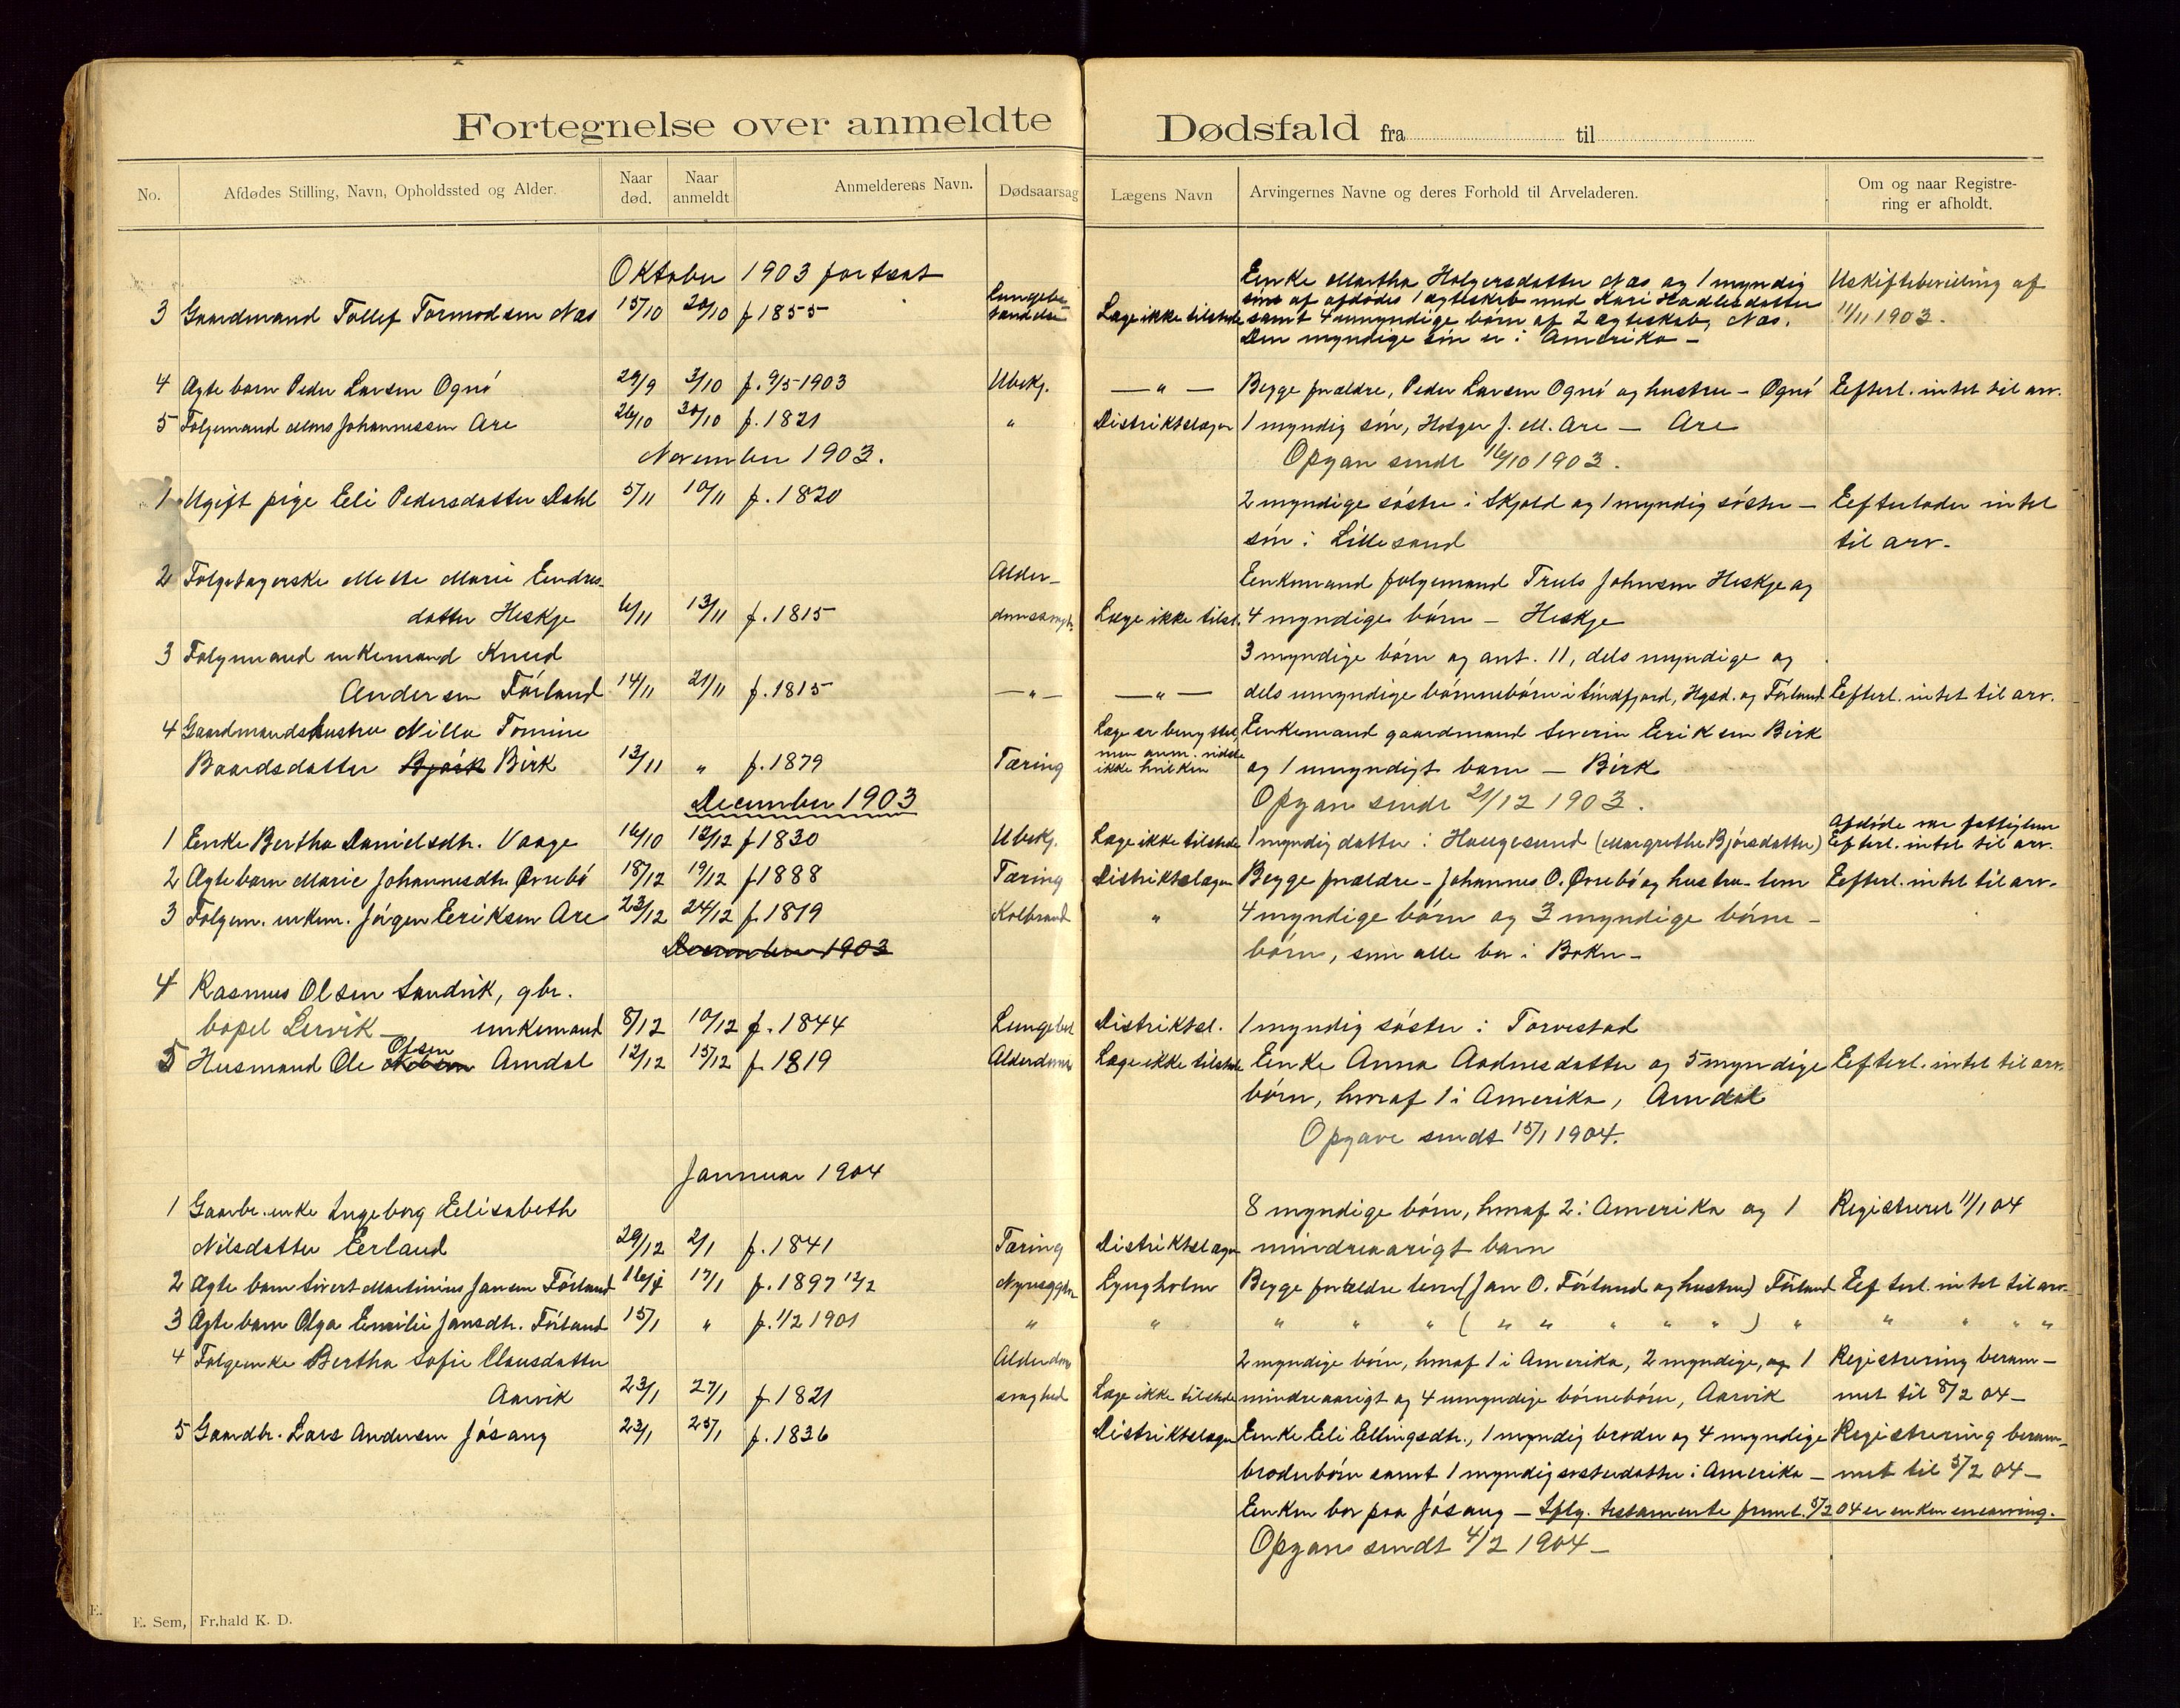 Fortegnelse over anmeldte Dødsfald fra til
No. Afdødes Stilling, Navn, Opholdssted og Alder. Naar død. Naar anmeldt Anmelderens Navn. Dødsaarsag Lægens Navn Arvingernes Navne og deres Forhold til Arveladeren. Om og naar Registrering er afholdt.
Oktober 1903 fortsat
3 Gaardmand Tollef Tormodsen Næs 15/10 20/10 f 1855 Lungebetændelse Læge ikke tilstede
Enke Martha Holgersdatter Næs og 1 myndig
søn af afdødes 1 ægteskab med Kari Hadlesdatter
samt 4 umyndige børn af 2 ægteskab, Næs.
Den myndige søn er i Amerika –
Uskiftebevilling af
11/11 1903.
4 Ægte barn Peder Larsen Ognø 29/9 3/10 f. 9/5 1903 Ubekj. — " — Begge forældre, Peder Larsen Ognø og hustru – Ognø Efterl. intet til arv.
5 Følgemand Mons Johannessen Are 26/10 30/10 f. 1821 " Distriktslægen 1 myndig søn, Holger J. M. Are — Are
November 1903. Opgave sendt 16/10 1903.
1 Ugift pige Eli Pedersdatter Dahl 5/11 10/11 f. 1820 2 myndige søstre i Skjold og 1 myndig søster – Efterlader intet
søn i Lillesand til arv.
2 Følgetagerske Mette Marie Endres- Alder- Enkemand følgemand Truls Johnsen Heskje og
datter Heskje 6/11 13/11 f. 1815 domssvagh. Læge ikke tilst. 4 myndige børn – Heskje
3 Følgemand enkemand Knud 3 myndige børn og ant. 11, dels myndige og
Andersen Førland 14/11 21/11 f. 1815 — " — — " — dels umyndige børnebørn i Søndfjord, Hgsd. og Førland Efterl. intet til arv.
4 Gaardmandshustru Nilla Tomine Læge er benyttet, Enkemand gaardmand Severin Eriksen Birk
Baardsdatter Bjørk Birk 13/11 " f. 1879 Tæring men anm. vidste ikke hvilken og 1 umyndigt barn – Birk
December 1903 Opgave sendt 21/12 1903.
1 Enke Bertha Danielsdtr. Vaage 16/10 12/12 f 1830 Ubekj. Læge ikke tilstede 1 myndig datter i Haugesund (Margrethe Bjørsdatter) Afdøde var fattiglem Efterl. intet til arv.
2 Ægte barn Marie Johannesdtr. Øvrebø 18/12 19/12 f 1888 Tæring Distriktslægen Begge forældre – Johannes O. Øvrebø og hustru – lem Efterl. intet til arv.
3 Følgem. enkem. Jørgen Eriksen Are 23/12 24/12 f. 1819 Kolbrand " 4 myndige børn og 3 myndige børne–
December 1903 børn, som alle bor i Bokn –
4 Rasmus Olsen Sandvik, gbr.
bopel Lervik – enkemand 8/12 10/12 f. 1844 Lungebet Distriktsl. 1 myndig søster i Torvestad
5 Husmand Ole Olsen Amdal 12/12 15/12 f. 1819 Alderdoms Læge ikke tilstede Enke Anna Aadnesdatter og 5 myndige Efterl. intet til arv.
børn, hvoraf 1 i Amerika, Amdal
Opgave sendt 15/1 1904.
Januar 1904
1 Gaarbr. enke Ingeborg Elisabeth 8 myndige børn, hvoraf 2 i Amerika og 1 Registreret 11/1 04
Nilsdatter Erland 29/12 2/1 f. 1841 Tæring Distriktslægen mindreaarigt barn
2 Ægte barn Sivert Martinius Jansen Førland 16/1 17/1 f. 1897 12/2 Lyngholm Begge forældre (Jan O. Førland og hustru) Førland Efterl. intet til arv.
3 Ægte barn Olga Emilie Jansdtr. Førland 15/1 " f. 1/2 1901 " " " " " ( " " " " " ) " " " " "
4 Følgeenke Bertha Sofie Clausdatter Alderdoms 2 myndige børn, hvoraf 1 i Amerika, 2 myndige, og 1 Registrering beram–
Aarvik 23/1 27/1 f. 1821 svaghed Læge ikke tilstede mindreaarigt og 4 umyndige børnebørn, Aarvik met til 8/2 04 –
5 Gaardbr. Lars Andersen Jøsang 23/1 25/1 f. 1836 Distriktslægen Enke Eli Ellingsdtr., 1 myndig broder og 4 myndige Registrering beram–
broderbørn samt 1 myndig søsterdatter i Amerika – met til 5/2 04 –
Enken bor paa Jøsang – Iflg. testamente fremt. 5/2 04 er enken enearving.
Opgave sendt 4/2 1904 –
E. Sem, Fr.hald K. D.